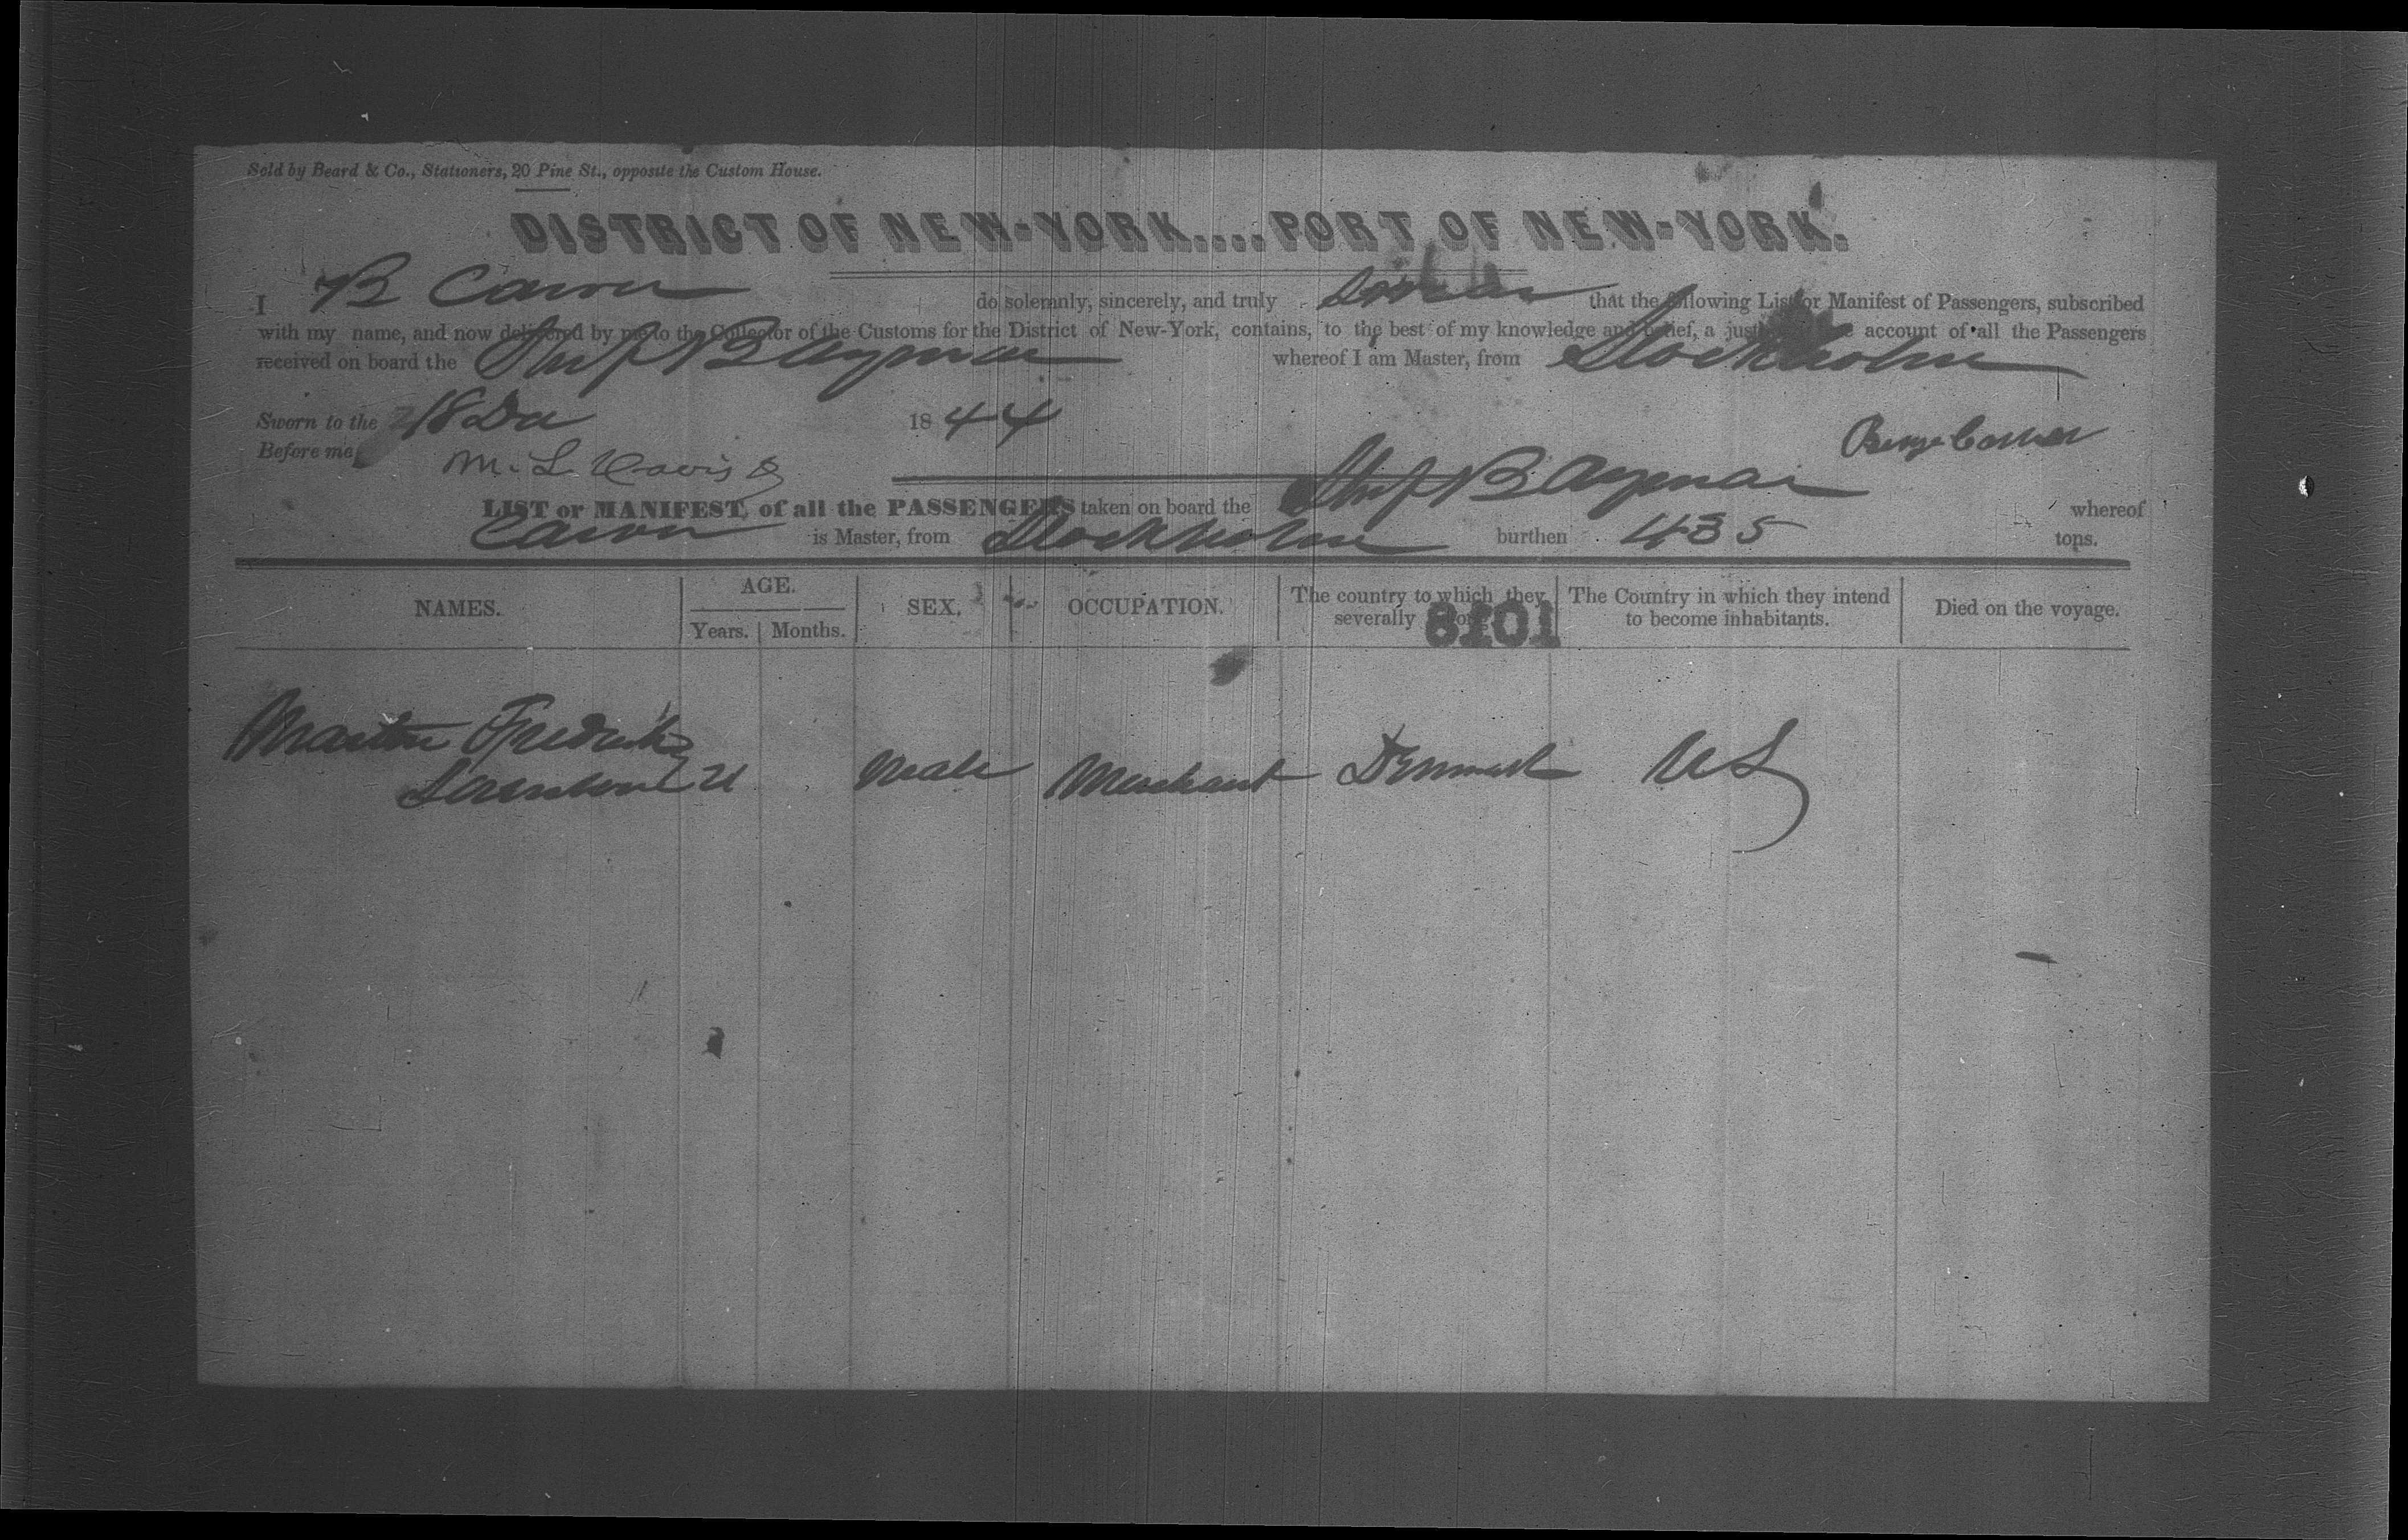 Sold by Beard & Co., Stationers, 20 Pine St., opposite the Custom House.
DISTRICT OF NEW-YORK....PORT OF NEW-YORK.
I B Carver do solemnly, sincerely, and truly that the following List or Manifest of Passengers, subscribed
with my name, and now delivered by me to the Collector of the Customs for the District of New-York, contains, to the best of my knowledge and belief, a just account of all the Passengers
received on board the Ship B Aymar whereof I am Master, from Stockholm
Sworn to the 18 1844
Before me M. L. Davis
LIST or MANIFEST, of all the PASSENGERS taken on board the Ship B Aymar whereof
Carver is Master, from Stockholm burthen 435 tons.
NAMES. AGE. Years. Months. SEX. OCCUPATION. The country to which they severally The Country in which they intend to become inhabitants. Died on the voyage.
8101
Martin Fredrik
Male Merchant Denmark US